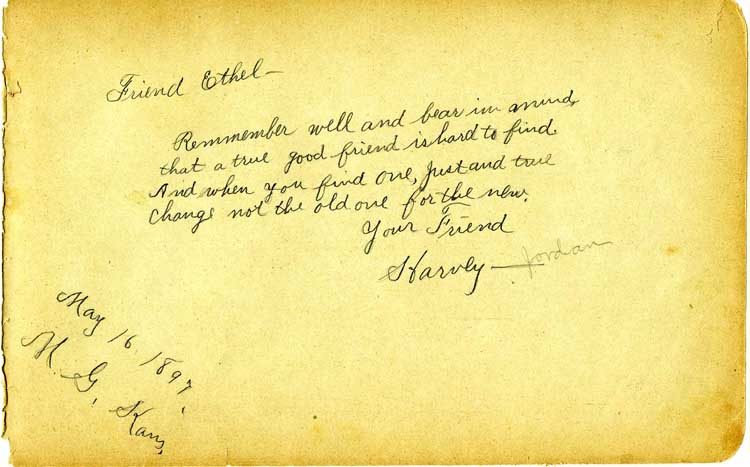 Friend Ethel—
Remmember well and bear in mind,
that a true good friend is hard to find.
And when you find one, just and true
Change not the old one for the new.
Your Friend
Harvey — Jordan
May 16, 1897,
M. G. Kans,